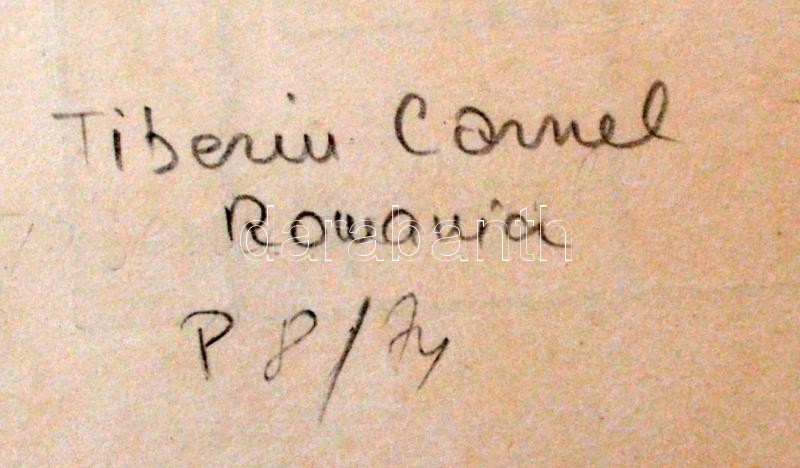 Tiberiu Cornel
Romania
darabanth
P 8/74